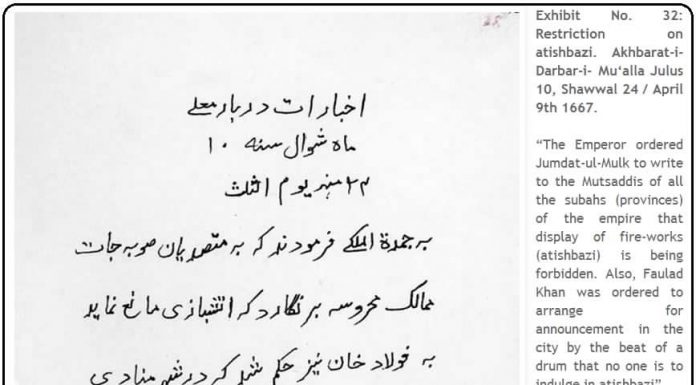 اخبارات دربار معلے
ماہ شوال سنہ ۱۰
۲۴ شہر یوم الثلث
بہ جمدة الملکے فرمودند کہ بہ متصدیان صوبہ جات
ممالک محروسہ بر نگارد کہ اتشبازی مانع نماید
بہ فولاد خان نیز حکم شد کہ در شہر منادی
Exhibit No. 32:
Restriction on
atishbazi. Akhbarat-i-
Darbar-i- Mu‘alla Julus
10, Shawwal 24 / April
9th 1667.
“The Emperor ordered
Jumdat-ul-Mulk to write
to the Mutsaddis of all
the subahs (provinces)
of the empire that
display of fire-works
(atishbazi) is being
forbidden. Also, Faulad
Khan was ordered to
arrange for
announcement in the
city by the beat of a
drum that no one is to
indulge in atishbazi”